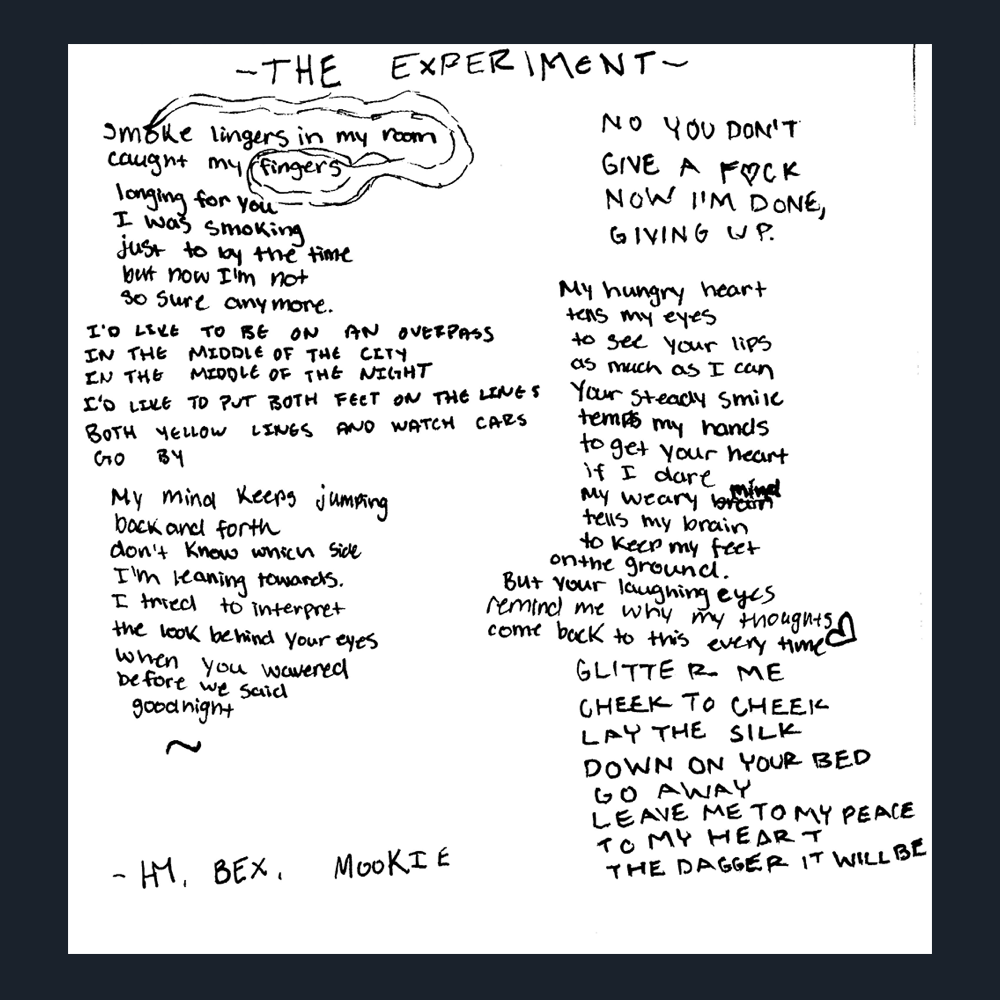 ~THE EXPERIMENT~
Smoke lingers in my room
caught my fingers
longing for you
I was smoking
just to by the time
but now I'm not
so sure anymore.
I'D LIKE TO BE ON AN OVERPASS
IN THE MIDDLE OF THE CITY
IN THE MIDDLE OF THE NIGHT
I'D LIKE TO PUT BOTH FEET ON THE LINES
BOTH YELLOW LINES AND WATCH CARS
GO BY
My mind keeps jumping
back and forth
don't know which side
I'm leaning towards.
I tried to interpret
the look behind your eyes
when you wavered
before we said
goodnight
~
- HM, BEX, MOOKIE
NO YOU DON'T
GIVE A F♡CK
NOW I'M DONE,
GIVING UP.
My hungry heart
tells my eyes
to see your lips
as much as I can
Your steady smile
tempts my hands
to get your heart
if I dare
My weary brain mind
tells my brain
to keep my feet
on the ground.
But your laughing eyes
remind me why my thoughts
come back to this every time ♡
GLITTER ME
CHEEK TO CHEEK
LAY THE SILK
DOWN ON YOUR BED
GO AWAY
LEAVE ME TO MY PEACE
TO MY HEART
THE DAGGER IT WILL BE